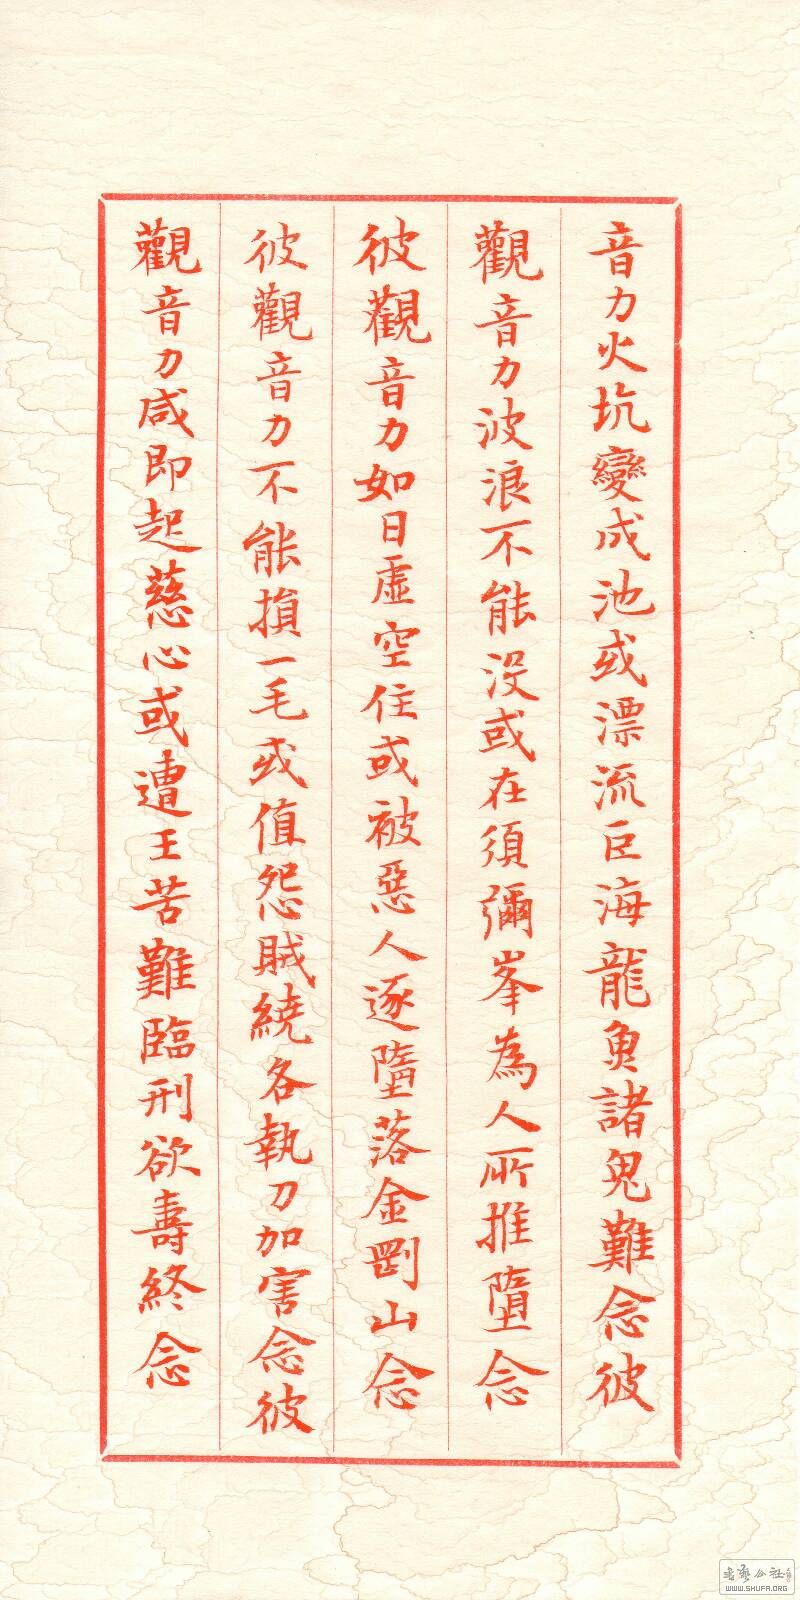 音力火坑變成池或漂流巨海龍魚諸鬼難念彼
觀音力波浪不能没或在須彌峯為人所推墮念
彼觀音力如日虛空住或被惡人逐墮落金剛山念
彼觀音力不能損一毛或值怨賊繞各執刀加害念彼
觀音力咸即起慈心或遭王苦難臨刑欲壽終念
書藝公社
WWW.SHUFA.ORG